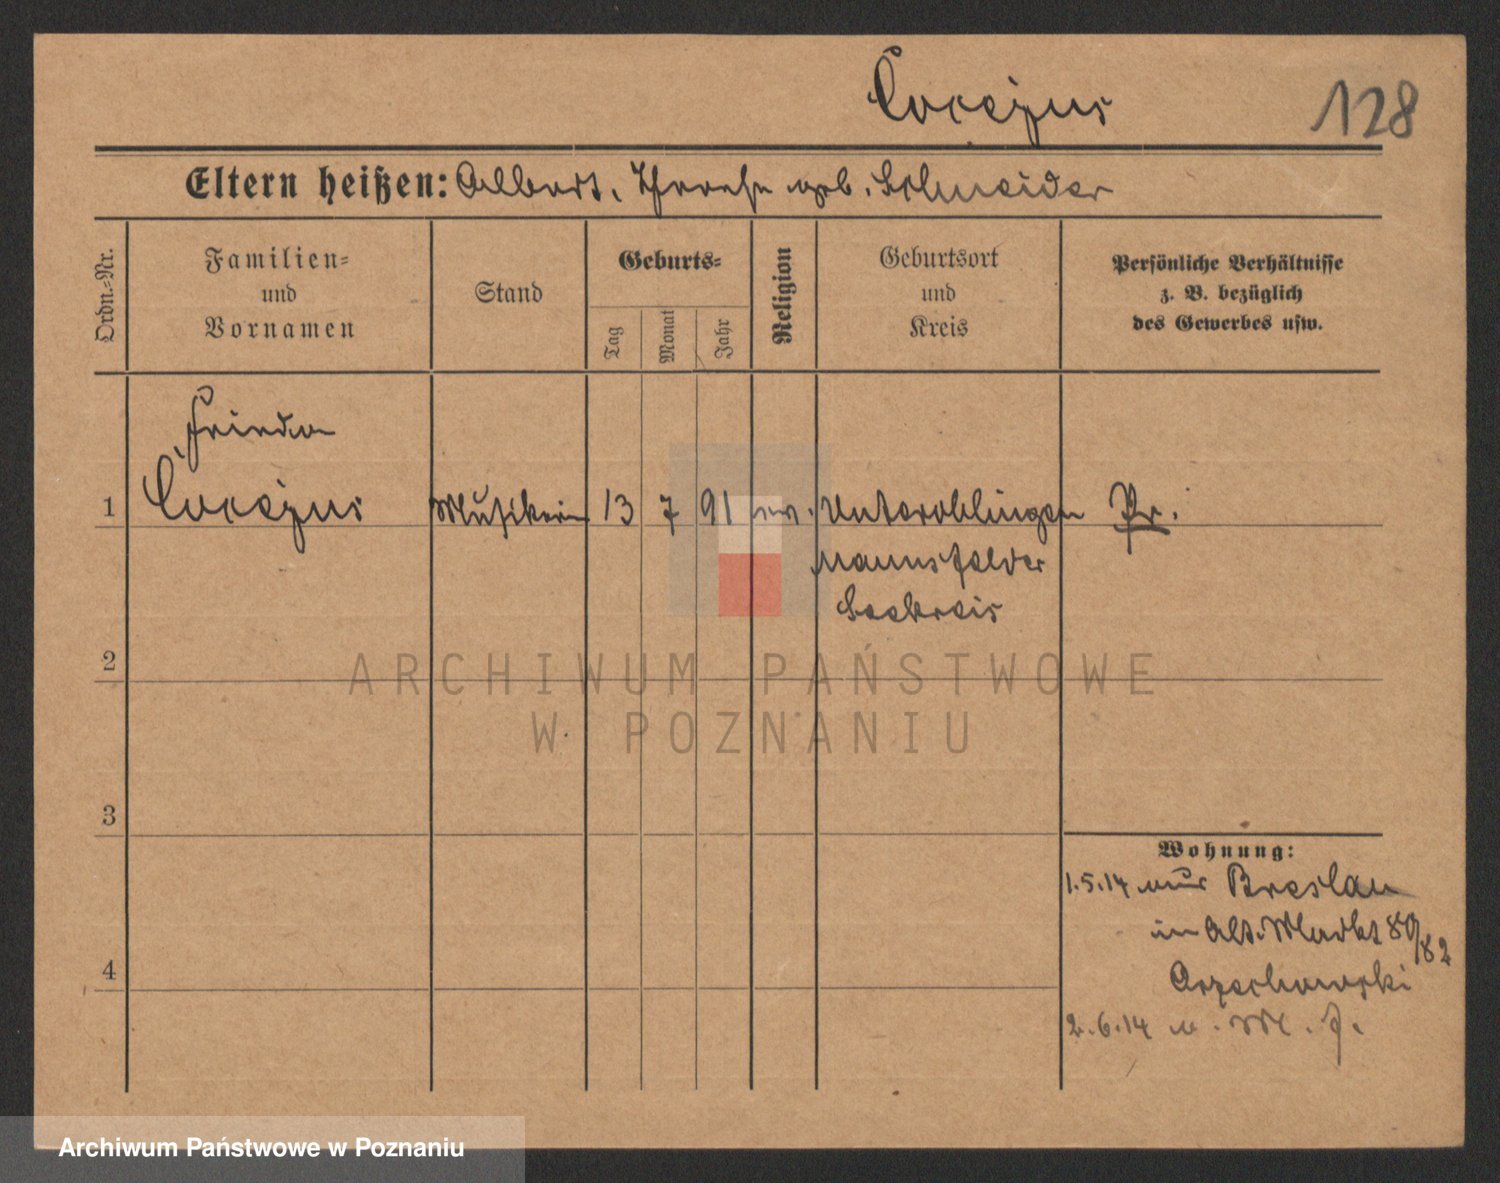 Cocejus
128
Eltern heißen: Albert, Therese geb. Schneider
Ordn.-Nr.
Familien-
und
Vornamen
Stand
Geburts-
Tag
Monat
Jahr
Religion
Geburtsort
und
Kreis
Persönliche Verhältnisse
z. B. bezüglich
des Gewerbes usw.
Frieda
1 Cocejus Musikerin 13 7 91 ev. Unteröblingen Pr.
Mannsfelder
Seekreis
2
3
4
Wohnung:
1.5.14 aus Breslau
in Alt. Markt 80/82
Orzechowski
2.6.14 n. M. J.
ARCHIWUM PAŃSTWOWE
W POZNANIU
Archiwum Państwowe w Poznaniu